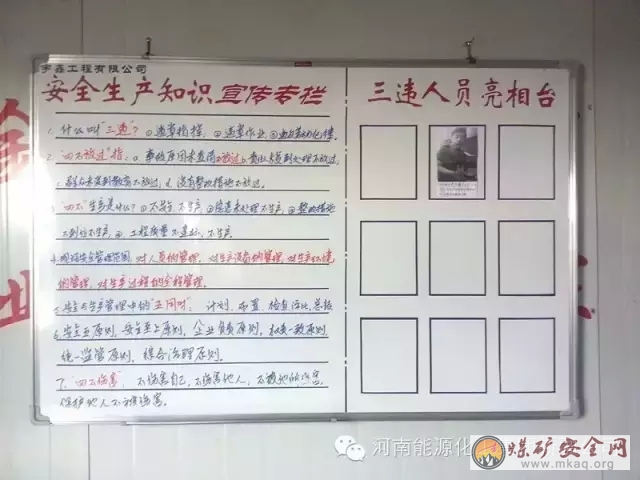 宇鑫工程有限公司
安全生产知识宣传专栏
三违人员亮相台
1. 什么叫"三违"? ①违章指挥, ②违章作业, ③违反劳动纪律.
2. "四不放过"指, a. 事故原因未查清不放过 b. 责任人员未处理不放过,
没有整改措施不放过.
3. "四不"生产是什么? ①不安全, 不生产 ②隐患未处理不生产, ③整改措施
不到位不生产, ④工程质量不达标, 不生产.
4. 现场安全管理范围, 对人员的管理, 对生产设备的管理, 对生产环境
的管理, 对生产过程的全程管理.
5. 安全与生产管理中的"五同时": 计划、布置、检查、评比、总结
6. 安全五原则, 安全至上原则, 企业负责原则, 权责一致原则
统一监管原则, 综合治理原则.
7. "四不伤害" 不伤害自己, 不伤害他人, 不被他人伤害,
保护他人不被伤害.
河南能源化
煤矿安全网
www.mkaq.org